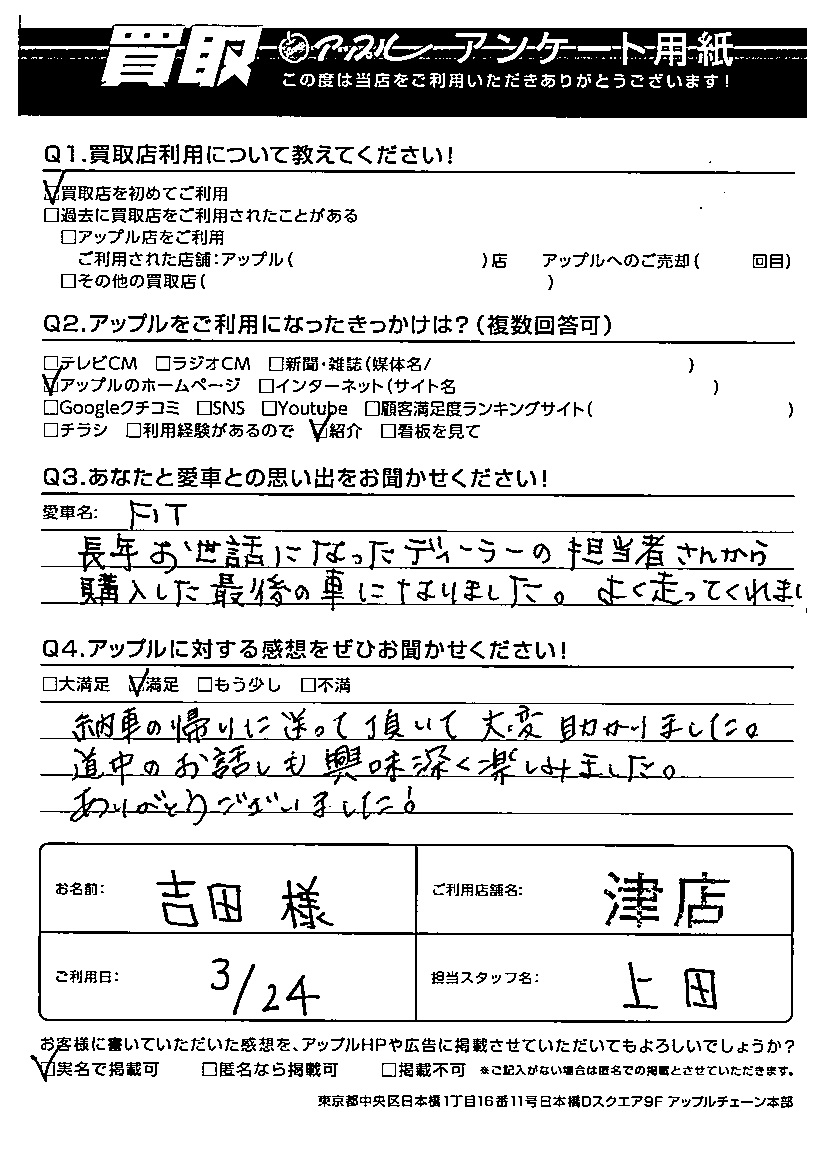 買取 アップル アンケート用紙
この度は当店をご利用いただきありがとうございます!
Q1.買取店利用について教えてください!
☑買取店を初めてご利用
□過去に買取店をご利用されたことがある
□アップル店をご利用
ご利用された店舗:アップル( )店 アップルへのご売却( 回目)
□その他の買取店( )
Q2.アップルをご利用になったきっかけは?(複数回答可)
□テレビCM □ラジオCM □新聞・雑誌(媒体名/ )
☑アップルのホームページ □インターネット(サイト名 )
□Googleクチコミ □SNS □Youtube □顧客満足度ランキングサイト( )
□チラシ □利用経験があるので ☑紹介 □看板を見て
Q3.あなたと愛車との思い出をお聞かせください!
愛車名: FIT
長年お世話になったディーラーの担当者さんから
購入した最後の車になりました。よく走ってくれまし
Q4.アップルに対する感想をぜひお聞かせください!
□大満足 ☑満足 □もう少し □不満
納車の帰りに送って頂いて大変助かりました。
道中のお話しも興味深く楽しみました。
ありがとうございました!
お名前: 吉田 様 ご利用店舗名: 津店
ご利用日: 3/24 担当スタッフ名: 上田
お客様に書いていただいた感想を、アップルHPや広告に掲載させていただいてもよろしいでしょうか?
☑実名で掲載可 □匿名なら掲載可 □掲載不可 ※ご記入がない場合は匿名での掲載とさせていただきます。
東京都中央区日本橋1丁目16番11号日本橋Dスクエア9F アップルチェーン本部